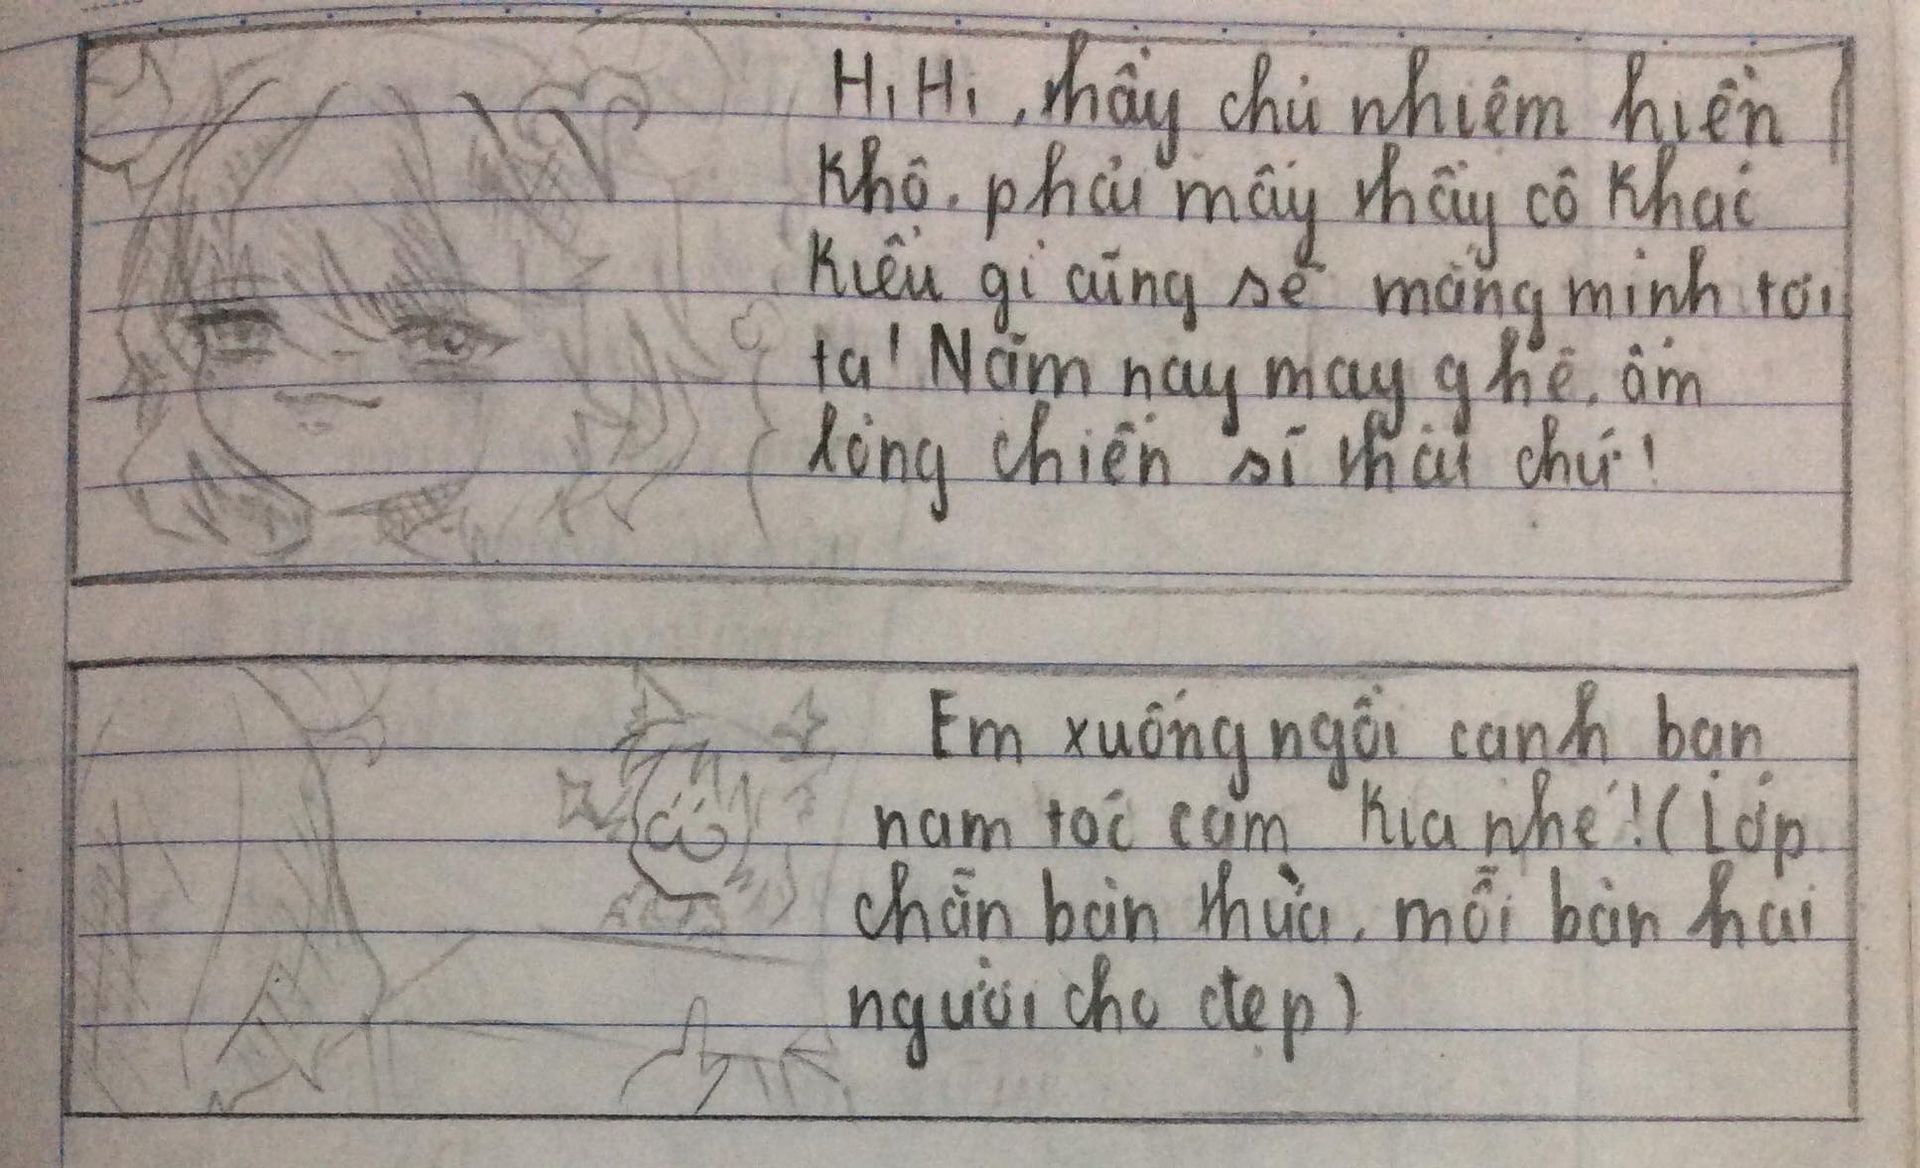 HiHi, thầy chủ nhiệm hiền
khô. phải mấy thầy cô khác
kiểu gì cũng sẽ mắng mình tơi
tả! Năm nay may ghê, ấm
lòng chiến sĩ thật chứ!
Em xuống ngồi cạnh bạn
nam tóc cam kia nhé! (Lớp
chẵn bàn thừa, mỗi bàn hai
người cho đẹp)